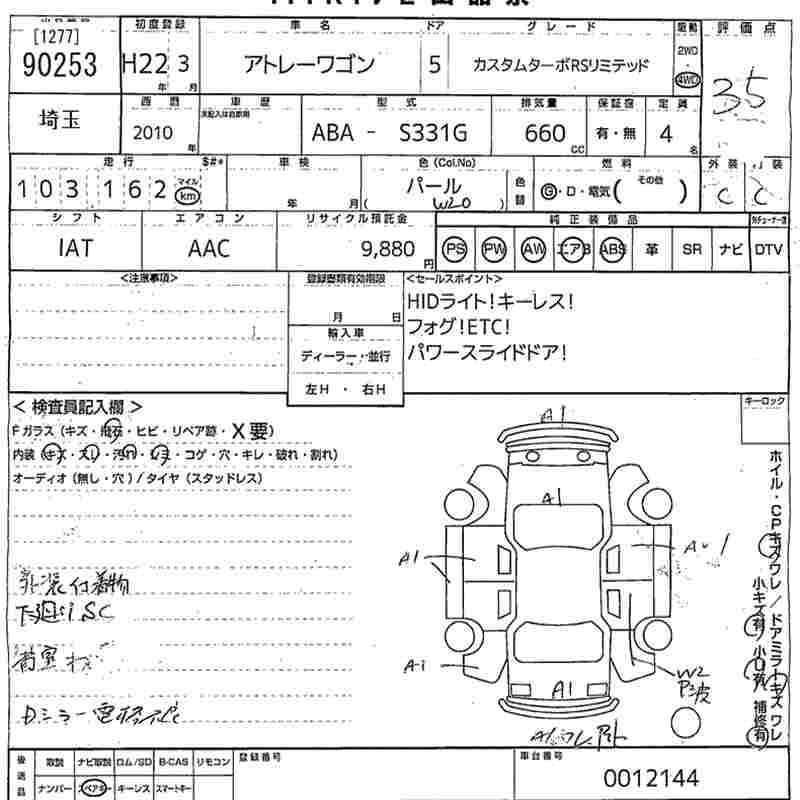 出品番号 初度登録 車名 ドア グレード 駆動 評価点
[1277]
90253 H22 3 アトレーワゴン 5 カスタムターボRSリミテッド 2WD 4WD 3.5
年 月
埼玉 西暦 車歴 型式 排気量 保証書 定員
2010 年 ABA - S331G 660 CC 有・無 4 名
走行 $#* 車検 色(Col.No) 燃料 外装 内装
103162 マイル km 年 月 パール 色替 G・D・電気( その他 ) C C
( W20 )
シフト エアコン リサイクル預託金 純正装備品
IAT AAC 9,880円 PS PW AW エアB ABS 革 SR ナビ DTV
<注意事項> 登録書類有効期限 <セールスポイント>
月 日
HIDライト!キーレス!
フォグ!ETC!
パワースライドドア!
輸入車
ディーラー・並行
左H ・ 右H
< 検査員記入欄 > キーロック
Fガラス(キズ・飛石・ヒビ・リペア跡・X要)
内装(キズ・スレ・汚れ・シミ・コゲ・穴・キレ・破れ・割れ)
オーディオ(無し・穴)/タイヤ(スタッドレス)
A1
A1
A1
A1
A1
W2
P波
下廻りSC
ホイル・CPキズワレ/ドアミラーキズワレ
小キズ有/小凹有 補修有
後送品 取説 ナビ取説 ロム/SD B-CAS リモコン 登録番号 車台番号
ナンバー スペアキー キーレス スマートキー 0012144